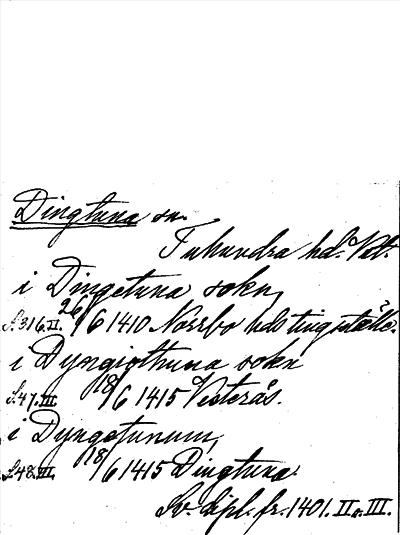 Dingtuna sn.
Tuhundra hd. Vst.
i Dingetuna sokn,
S. 316. II. 26/6 1410 Norrbo hds tingställe.
i Dyngiothuna sokn
S. 47. III. 18/6 1415 Vesterås.
i Dyngotunum,
S. 48. III. 18/6 1415 Dingtuna.
Sv. dipl. fr. 1401. II o. III.